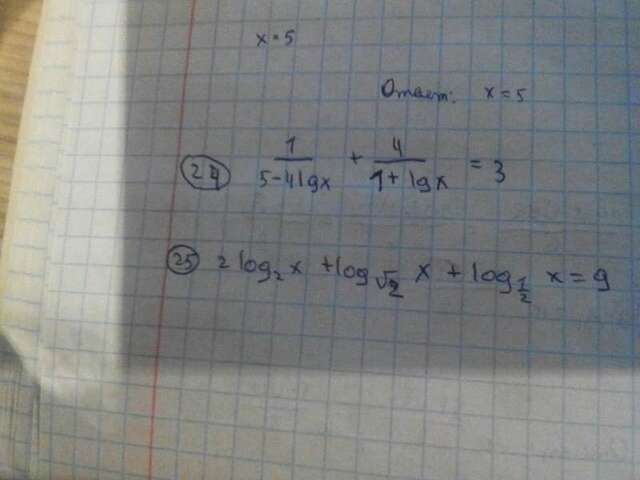 x = 5
Ответ: x = 5
24 1/(5-4lgx) + 4/(1+lgx) = 3
25 2log₂x + log_√2 x + log_1/2 x = 9